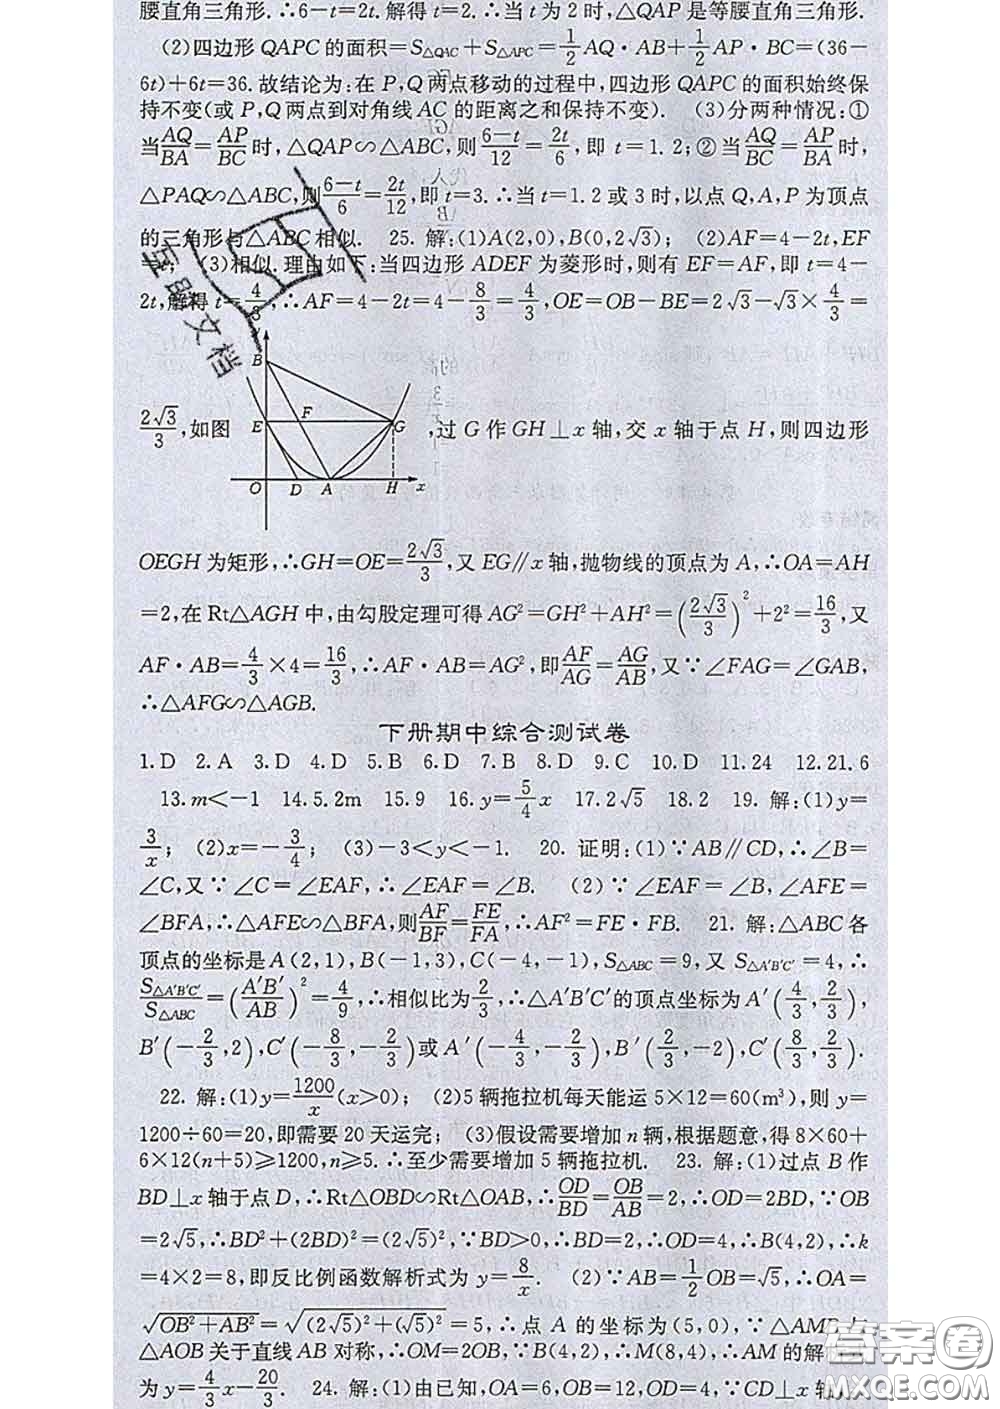 腰直角三角形.∴6-t=2t.解得t=2.∴当t为2时,△QAP是等腰直角三角形.
(2)四边形QAPC的面积=S△QAC+S△APC=1/2 AQ·AB+1/2 AP·BC=(36-
6t)+6t=36.故结论为:在P,Q两点移动的过程中,四边形QAPC的面积始终保
持不变(或P,Q两点到对角线AC的距离之和保持不变). (3)分两种情况:①
当AQ/BA=AP/BC时,△QAP∽△ABC,则(6-t)/12=2t/6,即t=1.2;②当AQ/BC=AP/BA时,
△PAQ∽△ABC,则(6-t)/6=2t/12,即t=3.∴当t=1.2或3时,以点Q,A,P为顶点
的三角形与△ABC相似. 25.解:(1)A(2,0),B(0,2√3); (2)AF=4-2t,EF
=t; (3)相似.理由如下:当四边形ADEF为菱形时,则有EF=AF,即t=4-
2t,解得t=4/3,∴AF=4-2t=4-8/3=4/3,OE=OB-BE=2√3-√3×4/3=
y
B
E F G
O D A H x
2√3/3,如图 ,过G作GH⊥x轴,交x轴于点H,则四边形
OEGH为矩形,∴GH=OE=2√3/3,又EG∥x轴,抛物线的顶点为A,∴OA=AH
=2,在Rt△AGH中,由勾股定理可得AG²=GH²+AH²=(2√3/3)²+2²=16/3,又
AF·AB=4/3×4=16/3,∴AF·AB=AG²,即AF/AG=AG/AB,又∵∠FAG=∠GAB,
∴△AFG∽△AGB.
下册期中综合测试卷
1.D 2.A 3.D 4.D 5.B 6.D 7.B 8.D 9.C 10.D 11.24 12.21.6
13.m<-1 14.5.2m 15.9 16.y=5/4 x 17.2√5 18.2 19.解:(1)y=
3/x; (2)x=-3/4; (3)-3<y<-1. 20.证明:(1)∵AB∥CD,∴∠B=
∠C,又∵∠C=∠EAF,∴∠EAF=∠B. (2)∵∠EAF=∠B,∠AFE=
∠BFA,∴△AFE∽△BFA,则AF/BF=FE/FA,∴AF²=FE·FB. 21.解:△ABC各
顶点的坐标是A(2,1),B(-1,3),C(-4,-1),S△ABC=9,又S△A′B′C′=4,∴
S△A′B′C′/S△ABC=(A′B′/AB)²=4/9,∴相似比为2/3,∴△A′B′C′的顶点坐标为A′(4/3,2/3),
B′(-2/3,2),C′(-8/3,-2/3)或A′(-4/3,-2/3),B′(2/3,-2),C′(8/3,2/3).
22.解:(1)y=1200/x(x>0); (2)5辆拖拉机每天能运5×12=60(m³),则y=
1200÷60=20,即需要20天运完; (3)假设需要增加n辆,根据题意,得8×60+
6×12(n+5)≥1200,n≥5.∴至少需要增加5辆拖拉机. 23.解:(1)过点B作
BD⊥x轴于点D,∴Rt△OBD∽Rt△OAB,∴OD/BD=OB/AB=2,∴OD=2BD,∵OB
=2√5,∴BD²+(2BD)²=(2√5)²,∵BD>0,∴BD=2,∴OD=4,∴B(4,2),∴k
=4×2=8,即反比例函数解析式为y=8/x. (2)∵AB=1/2 OB=√5,∴OA=
√(OB²+AB²)=√((2√5)²+(√5)²)=5,∴点A的坐标为(5,0),∵△AMB与
△AOB关于直线AB对称,∴OM=2OB,∵B(4,2),∴M(8,4),∴AM的解
为y=4/3 x-20/3. 24.解:(1)由已知,OA=6,OB=12,OD=4,∵CD⊥x轴
互助文档
答案圈
MXQE.COM